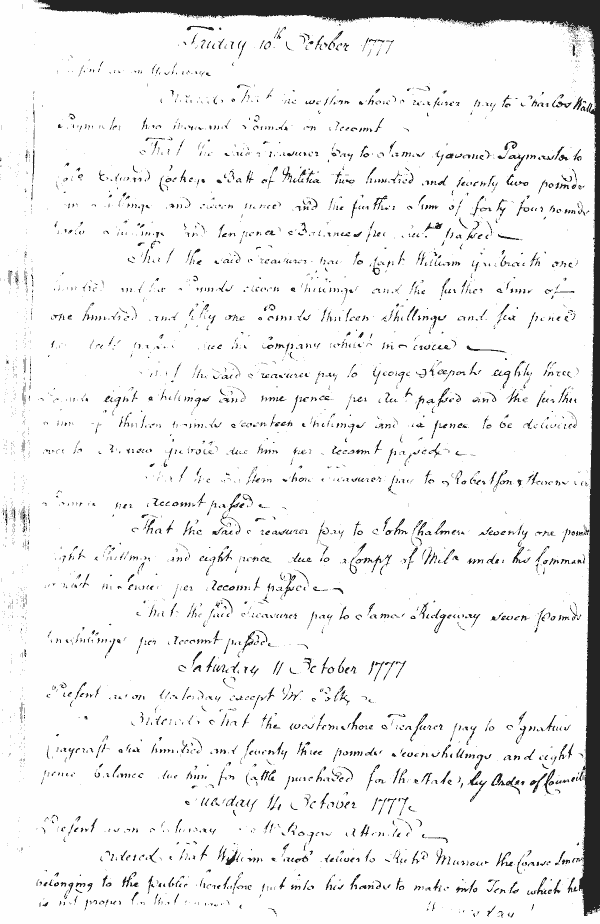 Friday 10th October 1777
Present as on Yesterday
Ordered That the western shore Treasurer pay to Charles Wallace
Paymaster two thousand Pounds on Account
That the said Treasurer pay to James Paymaster to
Colo Edward Cockey Batt of Militia two hundred and seventy two pounds
Shillings and eleven pence and the further Sum of forty four pounds
twelve Shillings and ten pence Balances per Accts passed
That the said Treasurer pay to Capt William Galbraith one
hundred and Pounds eleven Shillings and the further Sum of
one hundred and fifty one Pounds thirteen Shillings and six pence
per Accts passed due his Company whilst in Service
That the said Treasurer pay to George Keeports eighty three
Pounds eight Shillings and nine pence per Acct passed and the further
sum of thirteen pounds seventeen Shillings and six pence to be delivered
over to due him per Account passed
That the Eastern shore Treasurer pay to Robertson & Stevens
Pounds per Account passed
That the said Treasurer pay to John Chalmers seventy one pounds
eight Shillings and eight pence due to a Compy of Mila under his Command
whilst in Service per Account passed
That the said Treasurer pay to James Ridgeway seven Pounds
ten Shillings per Account passed
Saturday 11 October 1777
Present as on Yesterday except Mr. Polk
Ordered That the western shore Treasurer pay to Ignatius
Craycraft six hundred and seventy three pounds seven shillings and eight
pence balance due him for Cattle purchased for the State, by Order of Council
Tuesday 14 October 1777
Present as on Saturday Mr Rogers attended
Ordered That William Jacob deliver to Richd Murrow the Coarse Linen
belonging to the public heretofore put into his hands to make into Tents which he
is not proper for that